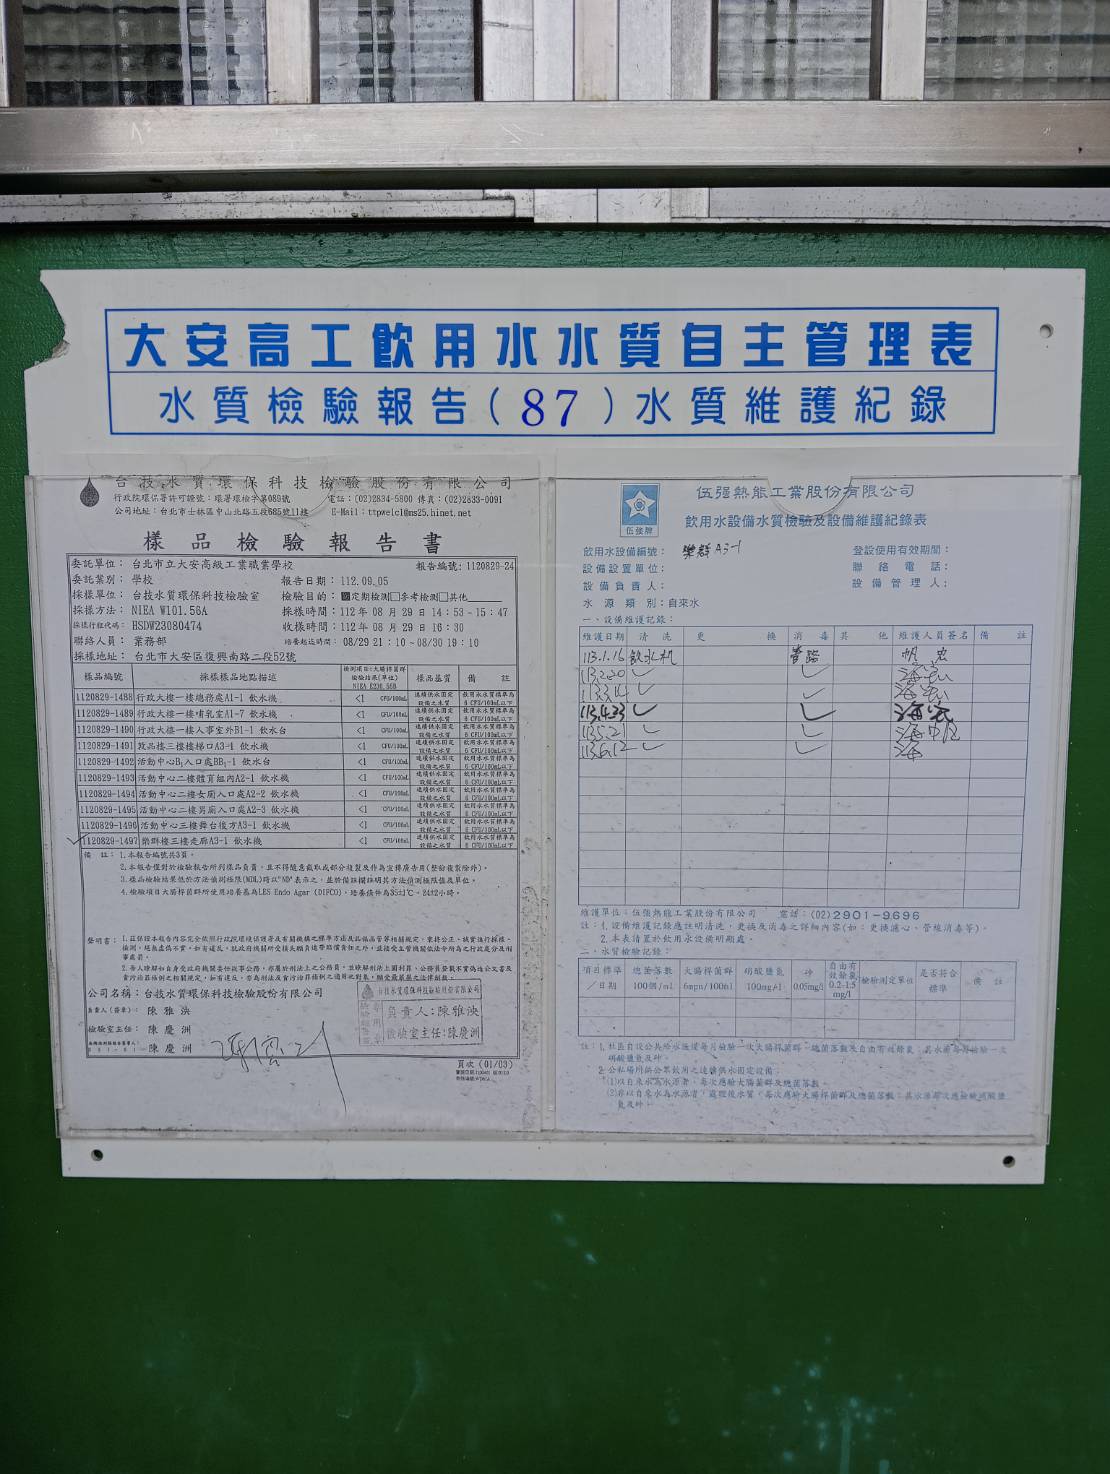 大安高工飲用水水質自主管理表
水質檢驗報告(87)水質維護紀錄
台技水質環保科技檢驗股份有限公司
行政院環保署許可證號:環署環檢字第089號 電話:(02)2834-5800 傳真:(02)2833-0091
公司地址:台北市士林區中山北路五段685號11樓 E-Mail:ttpwelcl@ms25.hinet.net
樣品檢驗報告書
委託單位: 台北市立大安高級工業職業學校 報告編號:1120829-24
委託業別: 學校 報告日期:112.09.05
採樣單位: 台技水質環保科技檢驗室 檢驗目的:定期檢測 參考檢測 其他
採樣方法: NIEA W101.56A 採樣時間:112年08月29日14:53-15:47
採樣行程代碼: HSDW23080474 收樣時間:112年08月29日16:30
聯絡人員: 業務部 培養起迄時間: 08/29 21:10~08/30 19:10
採樣地址: 台北市大安區復興南路二段52號
樣品編號 採樣樣品地點描述 檢測項目:大腸桿菌群 檢驗結果(單位) NIEA E230.55B 樣品基質 備註
1120829-1488 行政大樓一樓總務處A1-1 飲水機 <1 CFU/100mL 連續供水固定設備之水質 飲用水水質標準為6 CFU/100mL以下
1120829-1489 行政大樓一樓哺乳室A1-7 飲水機 <1 CFU/100mL 連續供水固定設備之水質 飲用水水質標準為6 CFU/100mL以下
1120829-1490 行政大樓一樓人事室外B1-1 飲水台 <1 CFU/100mL 連續供水固定設備之水質 飲用水水質標準為6 CFU/100mL以下
1120829-1491 敦品樓三樓樓梯口A3-4 飲水機 <1 CFU/100mL 連續供水固定設備之水質 飲用水水質標準為6 CFU/100mL以下
1120829-1492 活動中心B1入口處BB1-1 飲水台 <1 CFU/100mL 連續供水固定設備之水質 飲用水水質標準為6 CFU/100mL以下
1120829-1493 活動中心二樓體育組內A2-1 飲水機 <1 CFU/100mL 連續供水固定設備之水質 飲用水水質標準為6 CFU/100mL以下
1120829-1494 活動中心二樓女廁入口處A2-2 飲水機 <1 CFU/100mL 連續供水固定設備之水質 飲用水水質標準為6 CFU/100mL以下
1120829-1495 活動中心二樓男廁入口處A2-3 飲水機 <1 CFU/100mL 連續供水固定設備之水質 飲用水水質標準為6 CFU/100mL以下
1120829-1496 活動中心三樓舞台後方A3-1 飲水機 <1 CFU/100mL 連續供水固定設備之水質 飲用水水質標準為6 CFU/100mL以下
1120829-1497 樂群樓三樓走廊A3-1 飲水機 <1 CFU/100mL 連續供水固定設備之水質 飲用水水質標準為6 CFU/100mL以下
備註: 1.本報告編號共3頁。
2.本報告僅對於檢驗報告所列樣品負責,且不得隨意截取或部分複製及作為宣傳廣告用(整份複製除外)。
3.樣品檢驗結果低於方法偵測極限(MDL)時以"ND"表示之,並於備註欄註明其方法偵測極限值及單位。
4.檢驗項目大腸桿菌群所使用培養基為LES Endo Agar (DIFCO),培養條件為35±1℃,24±2小時。
聲明書:
公司名稱:台技水質環保科技檢驗股份有限公司
負責人(簽章): 陳雅泱
檢驗室主任: 陳慶洲
陳慶洲
台技水質環保科技檢驗股份有限公司
負責人:陳雅泱
檢驗室主任:陳慶洲
頁次(01/03)
伍強牌
伍强熱能工業股份有限公司
飲用水設備水質檢驗及設備維護紀錄表
飲用水設備編號: 樂群 A3-1 登設使用有效期間:
設備設置單位: 聯絡電話:
設備負責人: 設備管理人:
水源類別:自來水
一、設備維護記錄:
維護日期 清洗 更換 消毒 其他 維護人員簽名 備註
113.1.16 飲水机 管路
113.2.20
113.3.14
113.4.23
113.5.21
113.6.12
維護單位:伍強熱能工業股份有限公司 電話:(02)2901-9696
註:1.設備維護記錄應註明清洗、更換及消毒之詳細內容(如:更換濾心、管線消毒等)。
2.本表請置於飲用水設備明顯處。
二、水質檢驗記錄:
項目標準/日期 總菌落數 100個/ml 大腸桿菌群 6mpn/100ml 硝酸鹽氮 100mg/l 砷 0.05mg/l 自由有效餘氯 0.2-1.5 mg/l 檢驗測定單位 是否符合標準 備註
2.公私場所供公眾飲用之連續供水固定設備:
(1)以自來水為水源者,每次應驗大腸桿菌群及總菌落數。